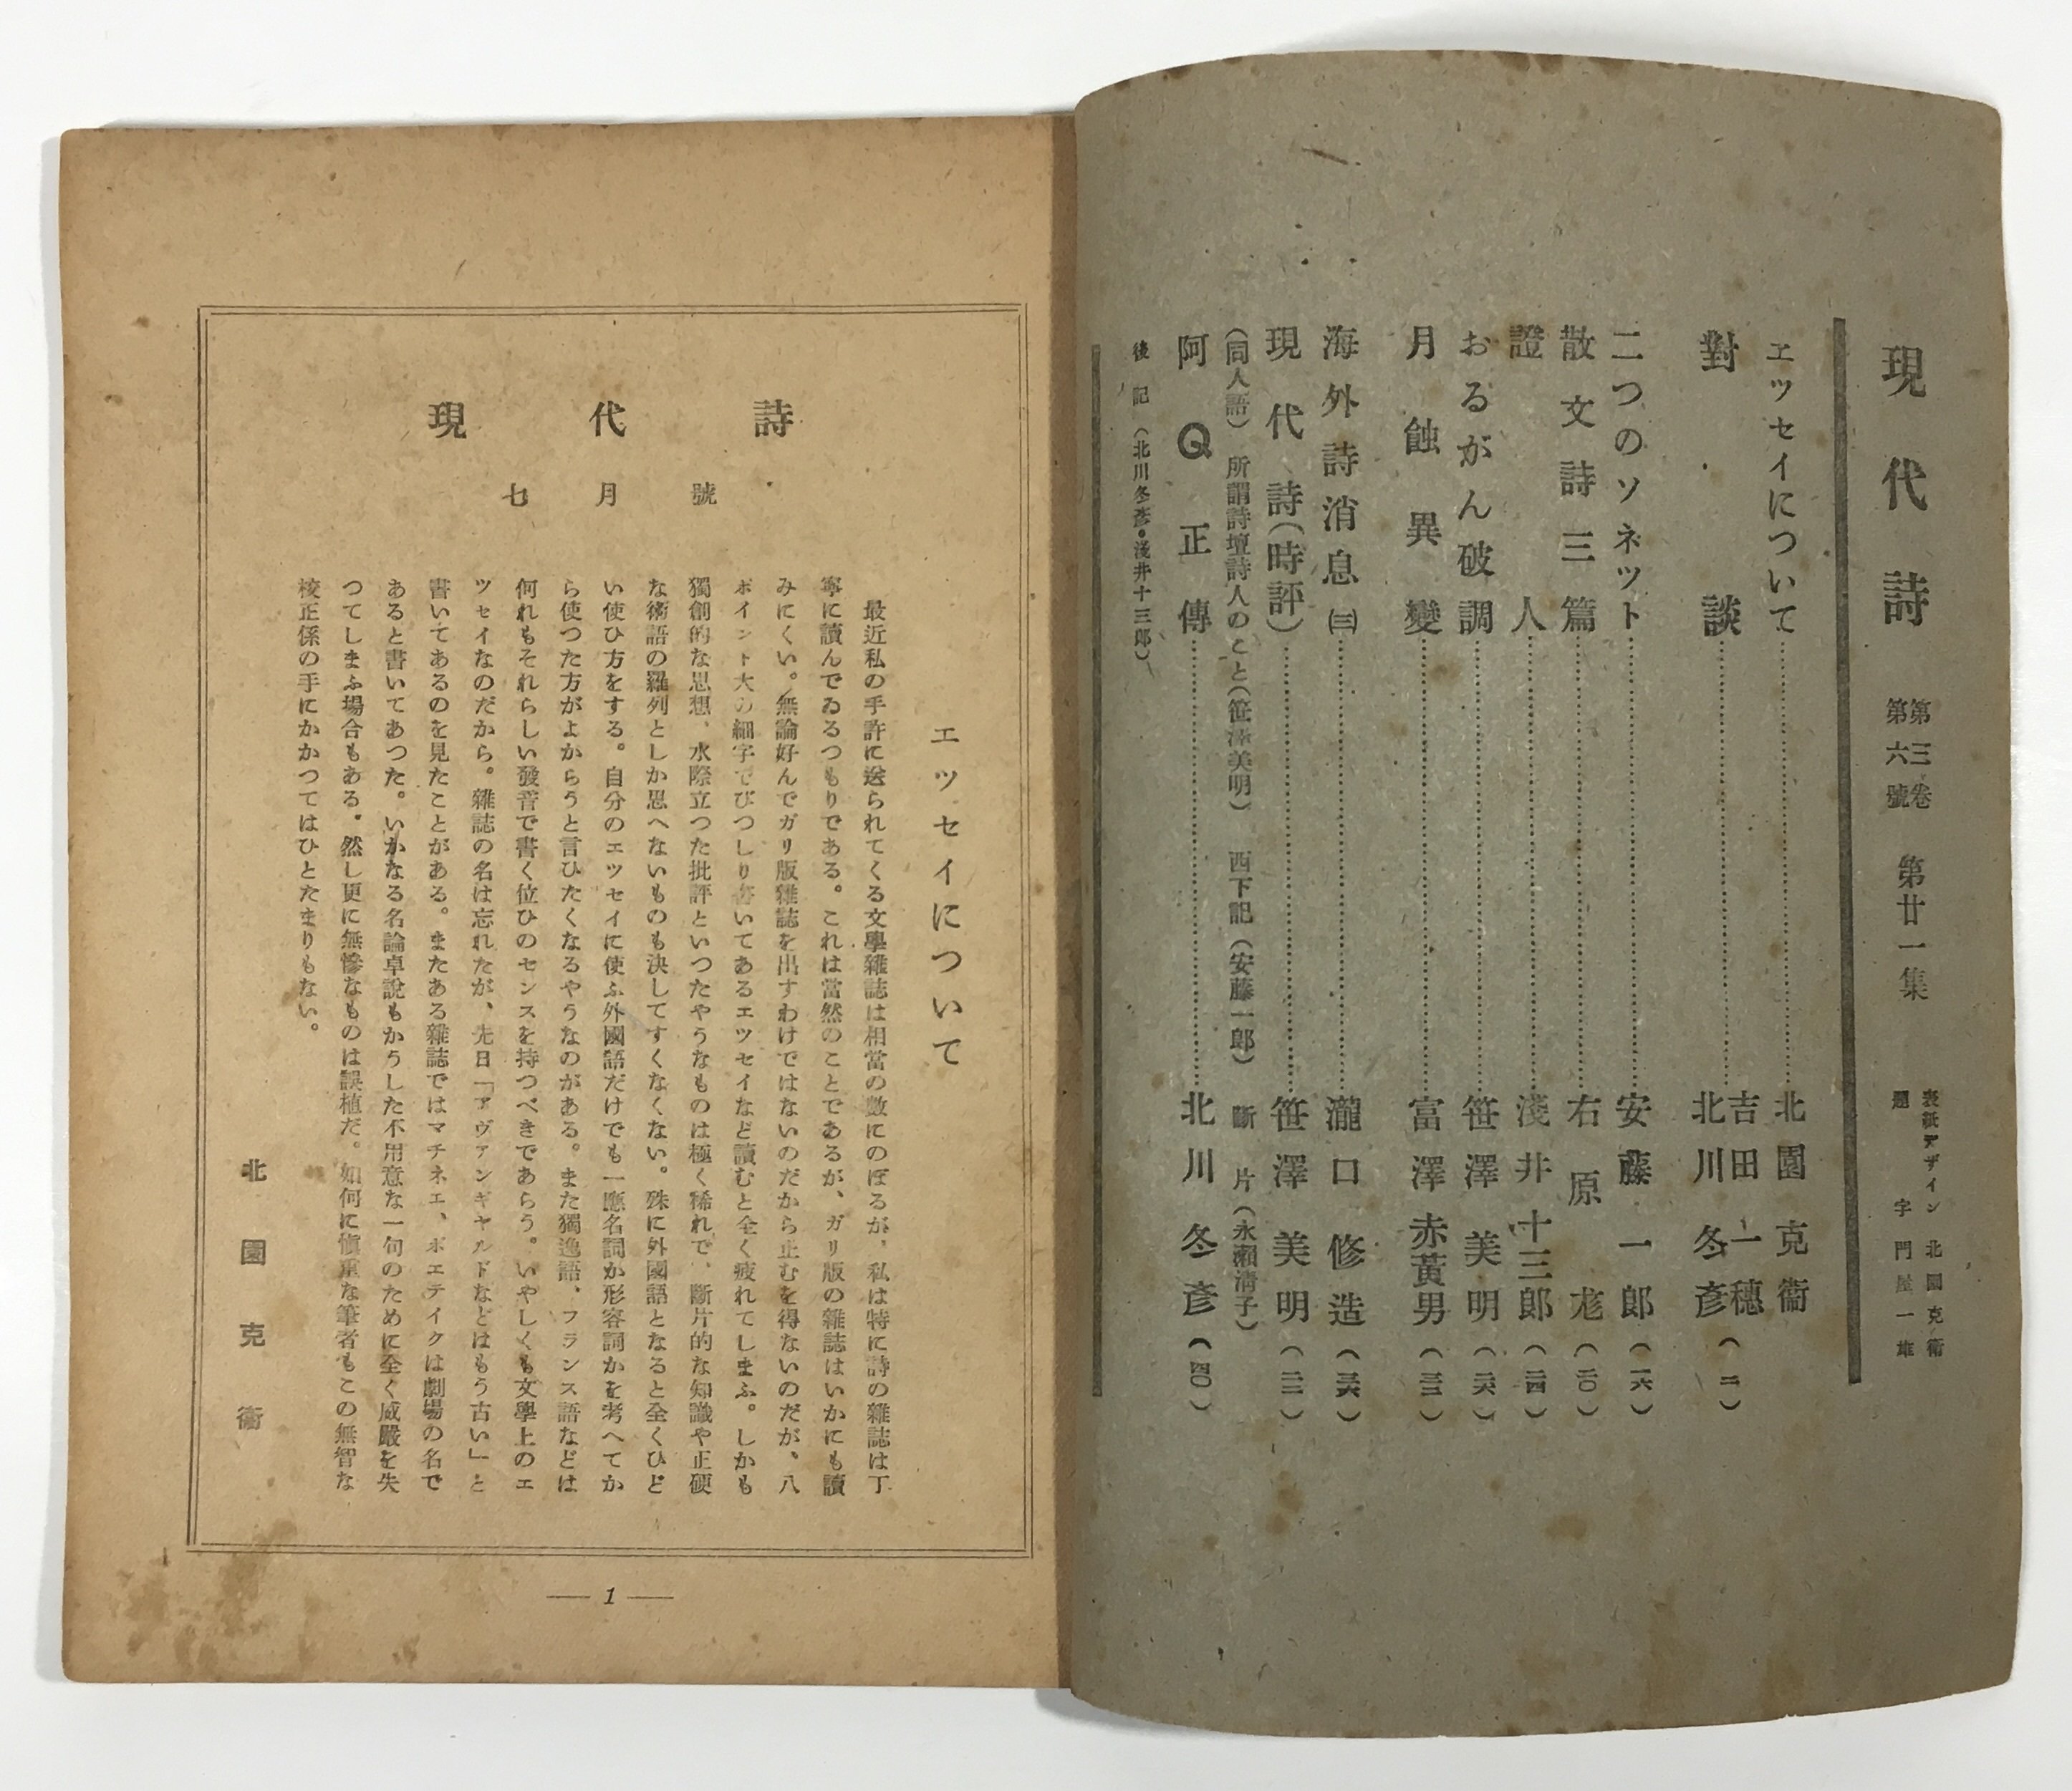 現代詩
第三卷
第六號
第廿一集
表紙デザイン 北園克衞
題字 門屋一雄
エッセイについて 北園克衞
對談 吉田一穗 北川冬彥(二)
二つのソネット 安藤一郎(一六)
散文詩三篇 右原尨(二〇)
證人 淺井十三郎(二四)
おるがん破調 笹澤美明(二六)
月蝕異變 富澤赤黃男(三二)
海外詩消息(三) 瀧口修造(三六)
現代詩(時評) 笹澤美明(二二)
(同人語) 所謂詩壇詩人のこと(笹澤美明) 西下記(安藤一郎) 斷片(永瀨淸子)
阿Q正傳 北川冬彥(四〇)
後記(北川冬彥・淺井十三郎)
現代詩
七月號
エツセイについて
最近私の手許に送られてくる文學雜誌は相當の數にのぼるが、私は特に詩の雜誌は丁
寧に讀んでゐるつもりである。これは當然のことであるが、ガリ版の雜誌はいかにも讀
みにくい。無論好んでガリ版雜誌を出すわけではないのだから止むを得ないのだが、八
ポイント大の細字でびつしり書いてあるエツセイなど讀むと全く疲れてしまふ。しかも
獨創的な思想、水際立つた批評といつたやうなものは極く稀れで、斷片的な知識や正硬
な術語の羅列としか思へないものも決してすくなくない。殊に外國語となると全くひど
い使ひ方をする。自分のエツセイに使ふ外國語だけでも一應名詞か形容詞かを考へてか
ら使つた方がよからうと言ひたくなるやうなのがある。また獨逸語、フランス語などは
何れもそれらしい發音で書く位ひのセンスを持つべきであらう。いやしくも文學上のエ
ツセイなのだから。雜誌の名は忘れたが、先日「アヴアンギヤルドなどはもう古い」と
書いてあるのを見たことがある。またある雜誌ではマチネエ、ポエテイクは劇場の名で
あると書いてあつた。いかなる名論卓說もかうした不用意な一句のために全く威嚴を失
つてしまふ場合もある。然し更に無慘なものは誤植だ。如何に愼重な筆者もこの無智な
校正係の手にかかつてはひとたまりもない。
北園克衞
— 1 —